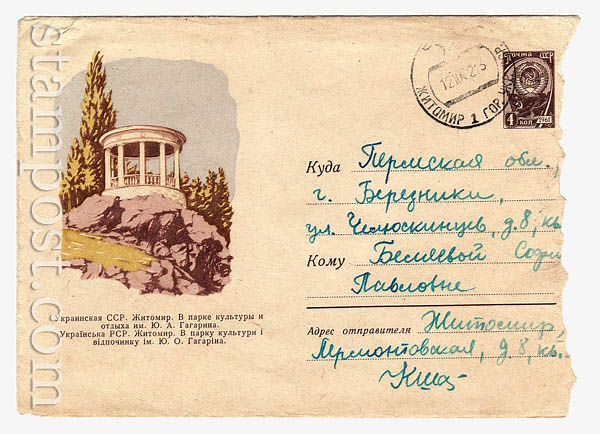 stampost.com
ПОЧТА СССР
4 КОП. 1961
ЖИТОМИР 1 ГОР.
Куда Пермская обл.,
г. Березники,
ул. Челюскинцев, д. 8, кв.
Кому Беляевой Софи
Павловне
Украинская ССР. Житомир. В парке культуры и
отдыха им. Ю. А. Гагарина.
Українська РСР. Житомир. В парку культури і
відпочинку ім. Ю. О. Гагаріна.
Адрес отправителя Житомир,
Лермонтовская, д. 8, кв.